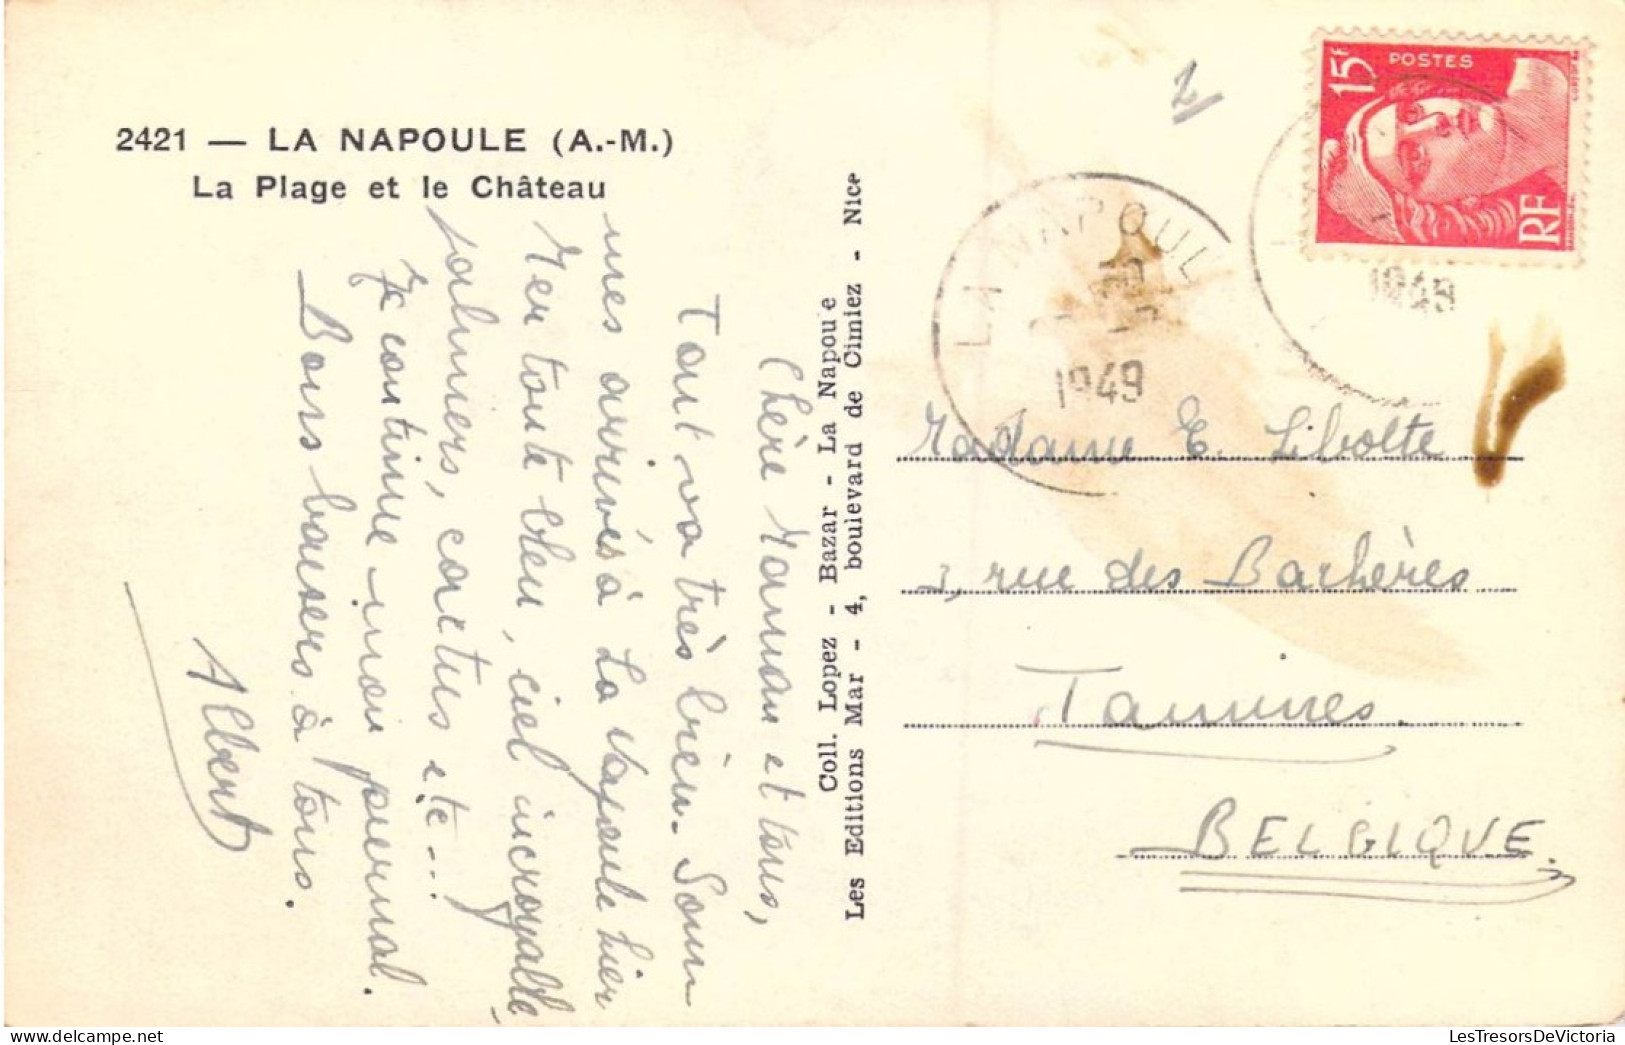 2421 — LA NAPOULE (A.-M.)
La Plage et le Château
Chère Maman et tous,
Tout va très bien. Som
mes arrivés à La Napoule hier
Mer toute bleu, ciel incroyable
palmiers, cactus etc...
Je continue mon journal.
Bons baisers à tous.
Albert
Coll. Lopez - Bazar - La Napoule
Les Editions Mar - 4, boulevard de Cimiez - Nice
2
POSTES
15F
RF
LA NAPOUL
1949
1949
Madame E. Libotte
3, rue des Bachères
Tamines.
BELGIQUE.
LesTresorsDeVictoria